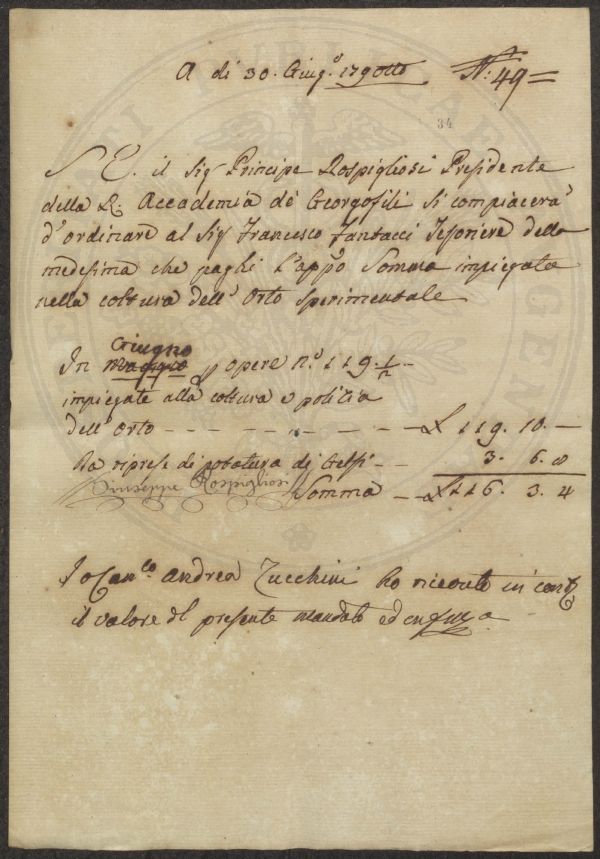 A di 30. Giug.º 179otto
N.: 49=
34
S E. il Sig.r Principe Rospigliosi Presidente
della R. Accademia de' Georgofili si compiacerà
d'ordinare al Sig.r Francesco Fantacci Tesoriere della
medesima che paghi l'app.º Somma impiegata
nella coltura dell'Orto sperimentale
Giugno
In Maggio p opere n.º 119. 1/2
impiegate alla coltura e pulizia
dell'Orto - - - - - - £ 119. 10. —
Da riprese di potatura di Gelsi - - 3. 6. 8
Giuseppe Rospigliosi Somma - £ 116. 3. 4
Io Can.co Andrea Zucchini ho ricevuto in cont.
il valore del presente mandato ed in